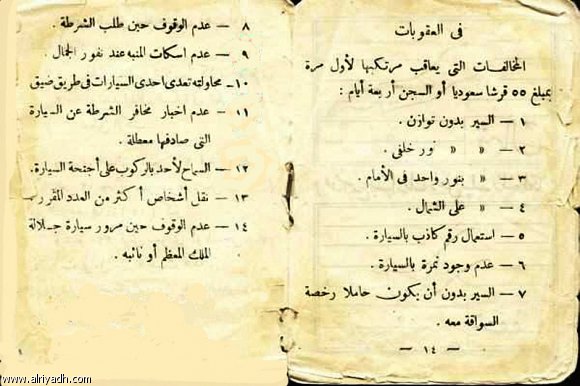 في العقوبات
المخالفات التى يعاقب مرتكبها لأول مرة
بمبلغ ٥٥ قرشا سعوديا أو السجن أربعة أيام :
١ — السير بدون توازن .
٢ — « « نور خلفى .
٣ — « بنور واحد فى الأمام .
٤ — « على الشمال .
٥ — استعمال رقم كاذب بالسيارة .
٦ — عدم وجود نمرة بالسيارة .
٧ — السير بدون أن يكون حاملا رخصة
السواقة معه .
— ١٤ —
٨ — عدم الوقوف حين طلب الشرطة .
٩ — عدم اسكات المنبه عند نفور الجمال
١٠ — محاولته تعدى احدى السيارات فى طريق ضيق
١١ — عدم اخبار مخافر الشرطة عن السيارة
التى صادفها معطلة .
١٢ — السماح لأحد بالركوب على أجنحة السيارة .
١٣ — نقل أشخاص أكثر من العدد المقرر
١٤ — عدم الوقوف حين مرور سيارة جلالة
الملك المعظم أو نائبه .
www.alriyadh.com